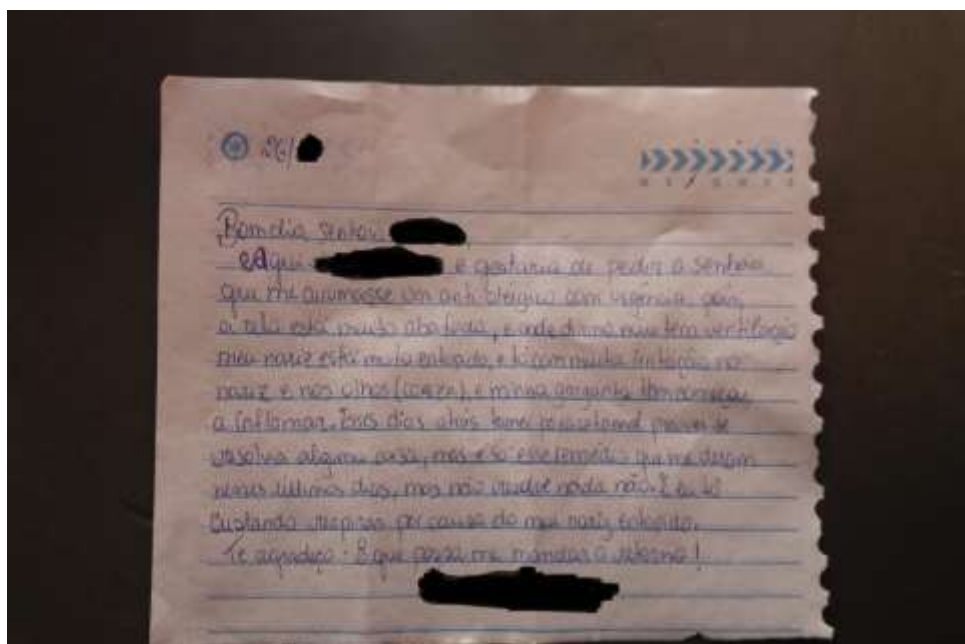 26/
Bom dia senhora
aqui e gostaria de pedir a senhora
que me arrumasse um anti alérgico com urgência pois
a cela está muito abafada, e onde durmo num tem ventilação
meu nariz está muito entupido, e tô com muita irritação no
nariz e nos olhos (coceira), e minha garganta tbm começou
a inflamar. Dois dias atrás tomei paracetamol pra ver se
resolvia alguma coisa, mas é só esse remédio que me deram
nesses últimos dias, mas não resolve nada não. E eu tô
custando respirar por causa do meu nariz entupido.
Te agradeço. E que possa me mandar o retorno!